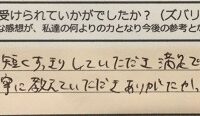 受けられていかがでしたか？（ズバリ
な感想が、私達の何よりの力となり今後の参考とな
短くすっきりしていただき 満足で
寧に教えていただきありがたか